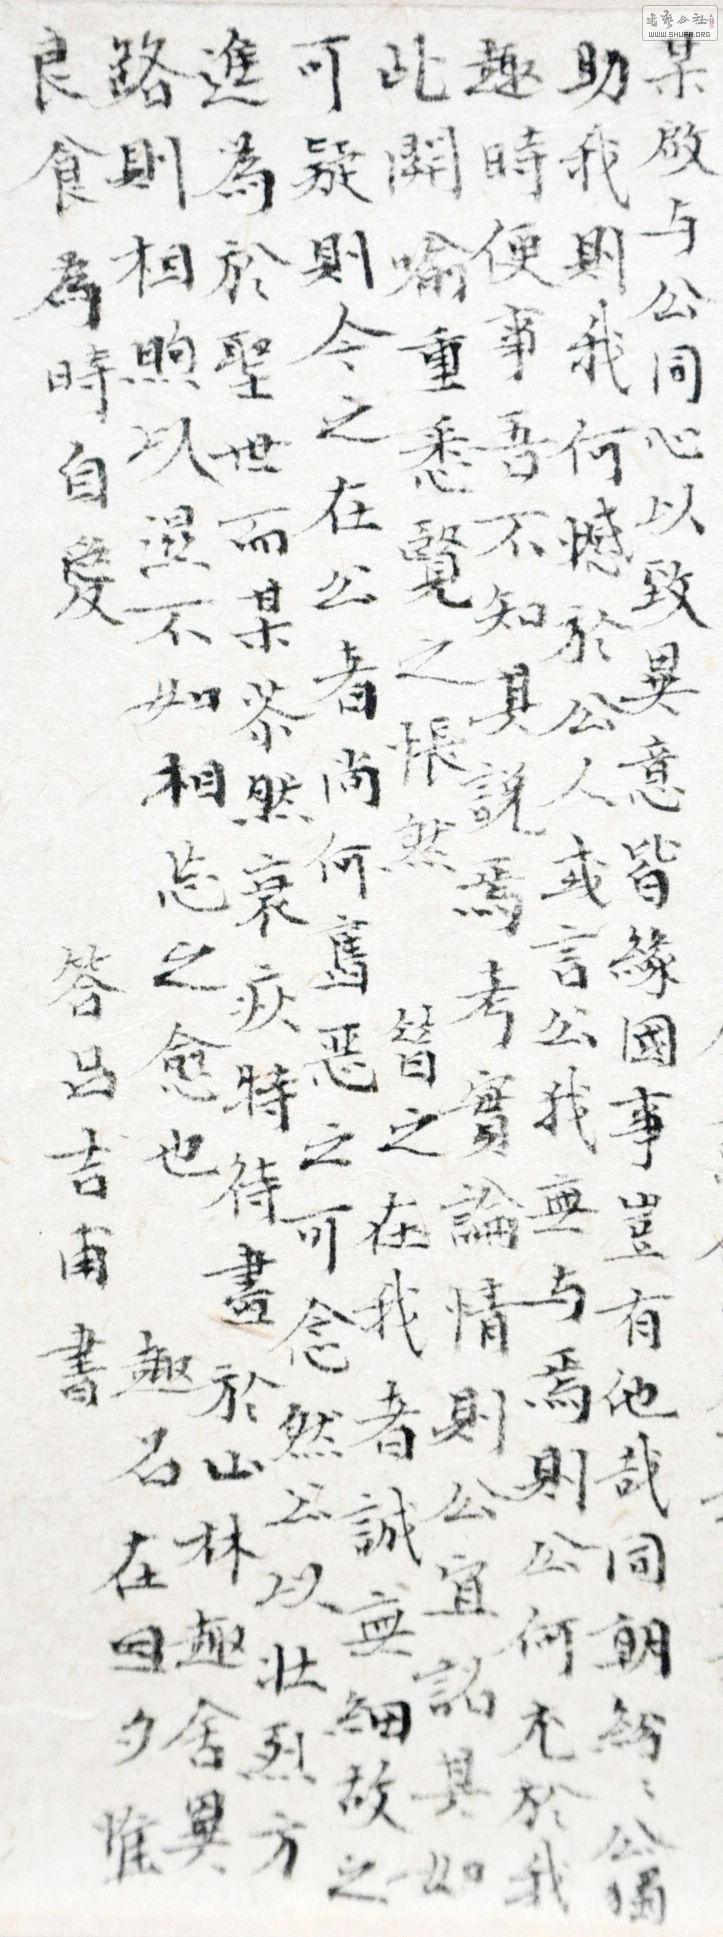 某啟与公同心以致異意皆緣國事豈有他哉同朝紛〻公獨
助我則我何憾於公人或言公我無与焉則公何尤於我
趣時便事吾不知其說焉考實論情則公宜詔其如
此開喻重悉覽之悵然 昔之在我者誠無細故之
可疑則今之在公者尚何舊恶之可念然公以壯烈方
進為於聖世而某苶然衰疢特待盡於山林趣舍異
路則相煦以湿不如相忘之愈也 趣召在旦夕惟
良食為時自愛 答呂吉甫書
書法公社
WWW.SHUFA.ORG